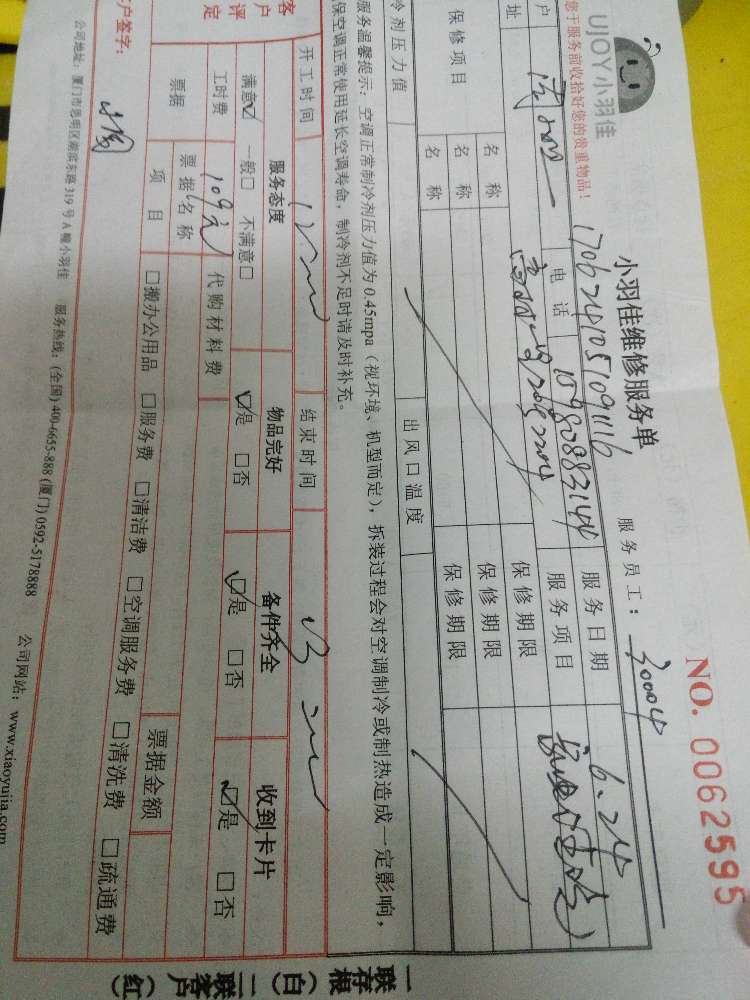 UJOY小羽佳
小羽佳维修服务单
NO. 0062595
您于服务前收拾好您的贵重物品！
服务员工：30004
17062410510911116
户
电话
15980883144
服务日期
6.24
址
服务项目
保修项目
名称
保修期限
名称
保修期限
名称
保修期限
冷剂压力值
出风口温度
服务温馨提示：空调正常制冷剂压力值为0.45mpa（视环境、机型而定），拆装过程会对空调制冷或制热造成一定影响，
保空调正常使用延长空调寿命，制冷剂不足时请及时补充。
开工时间
结束时间
客户评定
服务态度
物品完好
备件齐全
收到卡片
满意☑ 一般□ 不满意□
☑是 □否
☑是 □否
☑是 □否
工时费
109元
代购材料费
票据
票据名称
票据金额
项目
□搬办公用品 □服务费 □清洁费 □空调服务费 □清洗费 □疏通费
客户签字：
公司地址：厦门市思明区湖滨东路319号A幢小羽佳 服务热线：(全国) 400-6655-888 (厦门) 0592-5178888 公司网站：www.xiaoyujia.com
一联存根（白）二联客户（红）